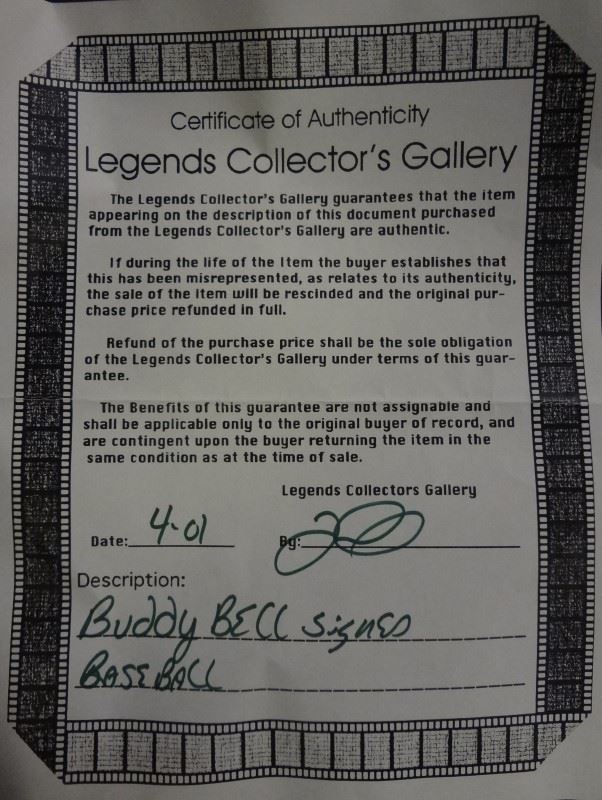 Certificate of Authenticity
Legends Collector's Gallery
The Legends Collector's Gallery guarantees that the item
appearing on the description of this document purchased
from the Legends Collector's Gallery are authentic.
If during the life of the Item the buyer establishes that
this has been misrepresented, as relates to its authenticity,
the sale of the Item will be rescinded and the original pur-
chase price refunded in full.
Refund of the purchase price shall be the sole obligation
of the Legends Collector's Gallery under terms of this guar-
antee.
The Benefits of this guarantee are not assignable and
shall be applicable only to the original buyer of record, and
are contingent upon the buyer returning the item in the
same condition as at the time of sale.
Legends Collectors Gallery
Date: 4-01 By:
Description:
Buddy BELL SIGNED
BASEBALL